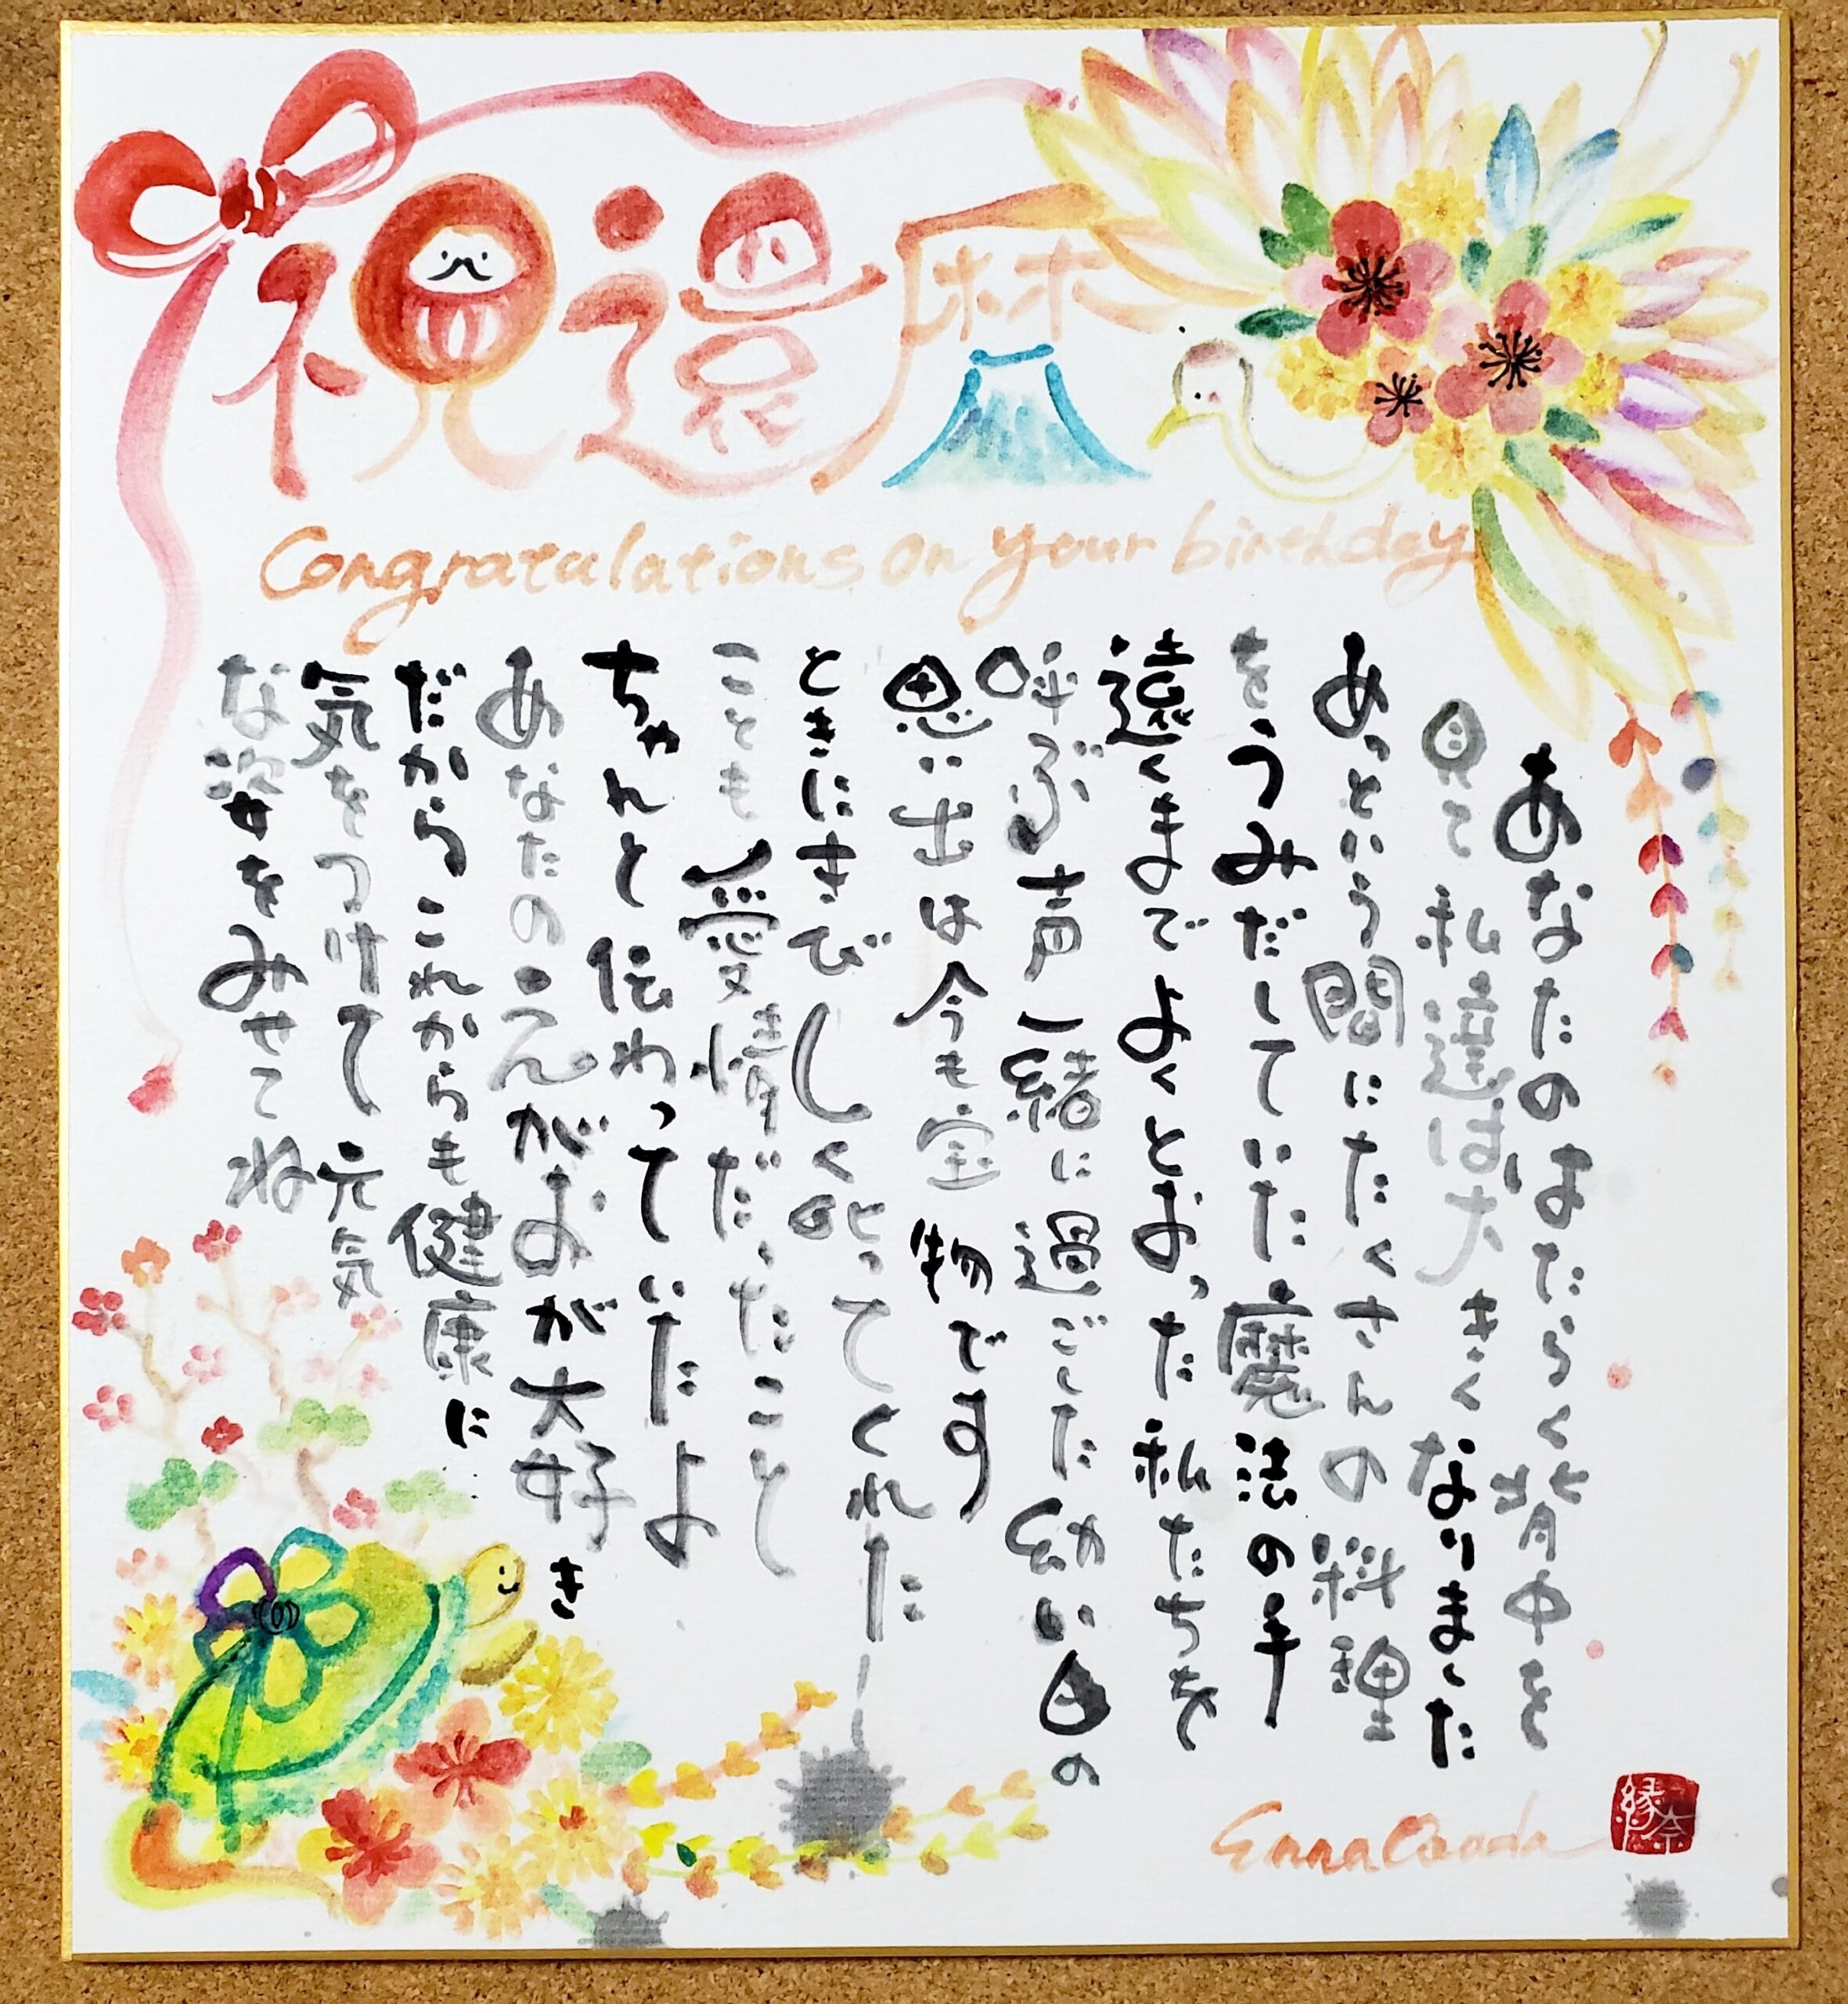 祝還暦
Congratulations on your birthday
あなたのはたらく背中を
見て私達は大きくなりました
あっという間にたくさんの料理
をうみだしていた魔法の手
遠くまでよくとおった私たちを
呼ぶ声一緒に過ごした幼い日の
思い出は今も宝物です
ときにきびしく叱ってくれた
ことも愛情だったこと
ちゃんと伝わっていたよ
あなたのえがおが大好き
だからこれからも健康に
気をつけて元気
な姿をみせてね
縁奈